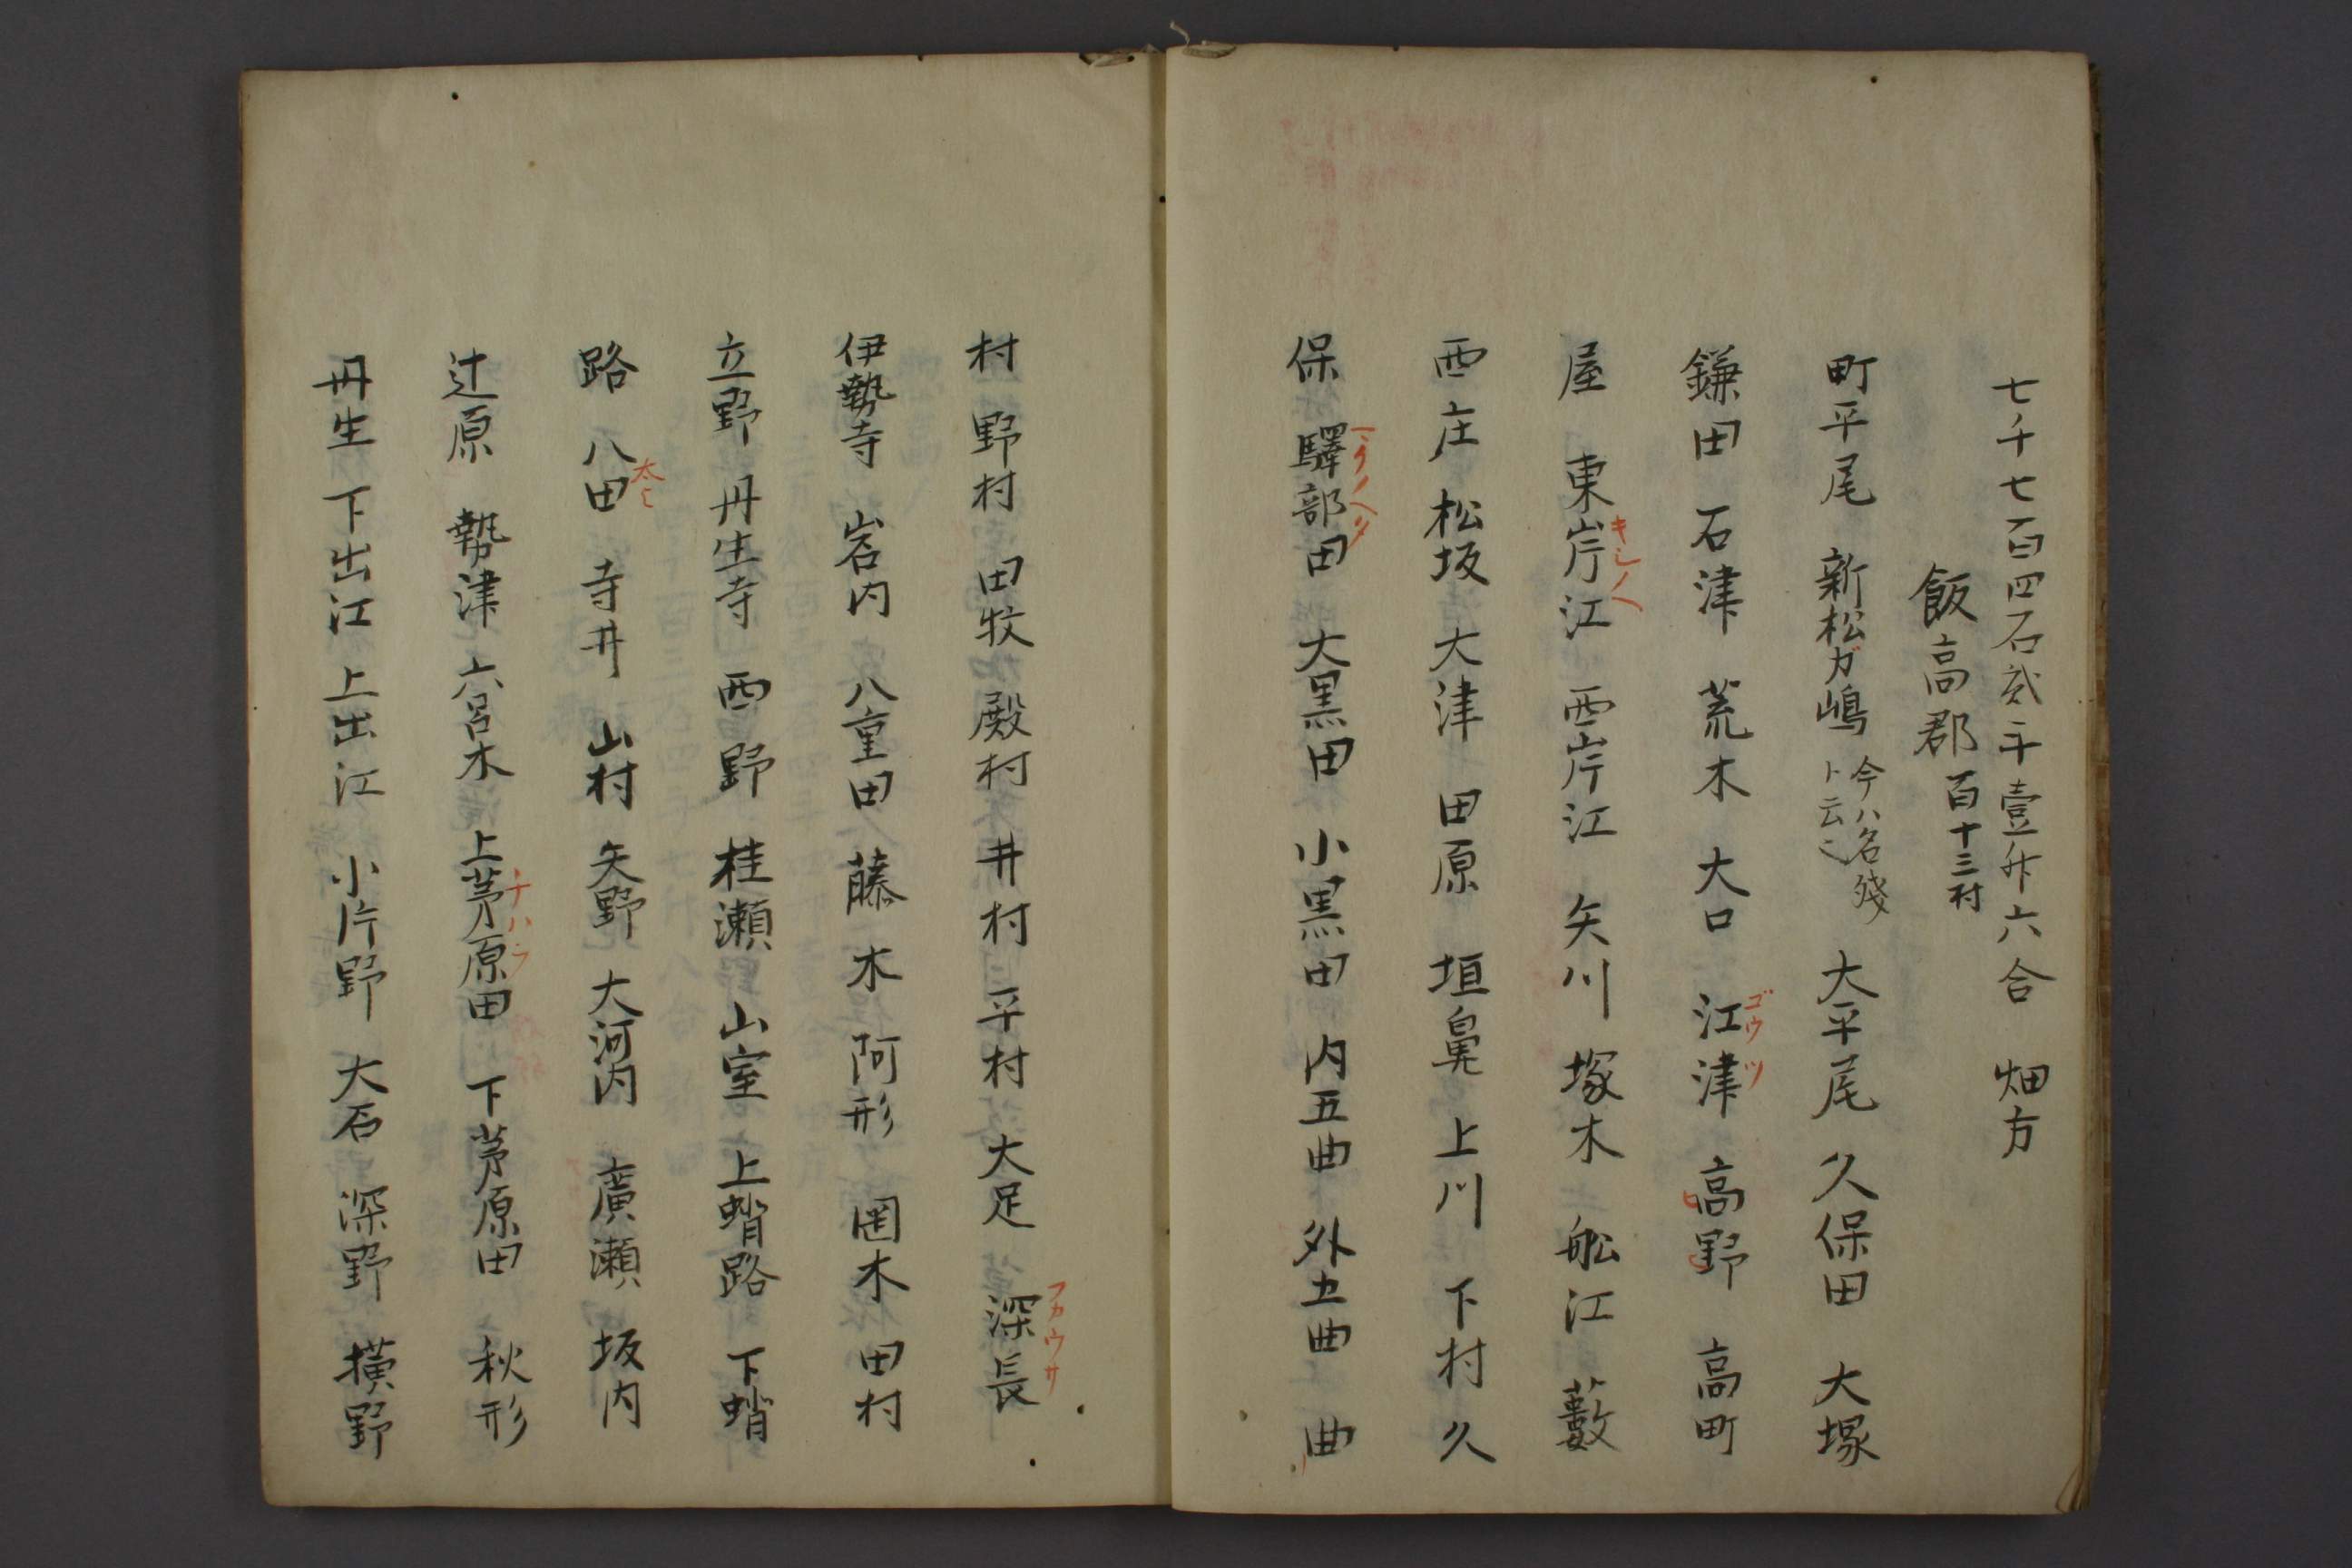 七千七百四石弐斗壹升六合　畑方
飯高郡 百十三村
町平尾　新松ガ嶋 今ハ名殘ト云 大平尾　久保田　大塚
鎌田　石津　荒木　大口　江津 ゴウツ　高野　高町
屋　東岸江 キシノヘ　西岸江　矢川　塚木　舩江　藪
西庄　松坂　大津　田原　垣鼻　上川　下村　久
保　驛部田　大黒田　小黒田　内五曲　外五曲　曲
村　野村　田牧　殿村　井村　平村　大足　深長 フカウサ
伊勢寺　岩内　八重田　藤木　阿形　岡木　田村
立野　丹生寺　西野　桂瀬　山室　上蛸路　下蛸
路　八田　寺井　山村　矢野　大河内　廣瀬　坂内
辻原　勢津　六呂木　上茅原田 チハラ　下茅原田　秋形
丹生　下出江　上出江　小片野　大石　深野　横野